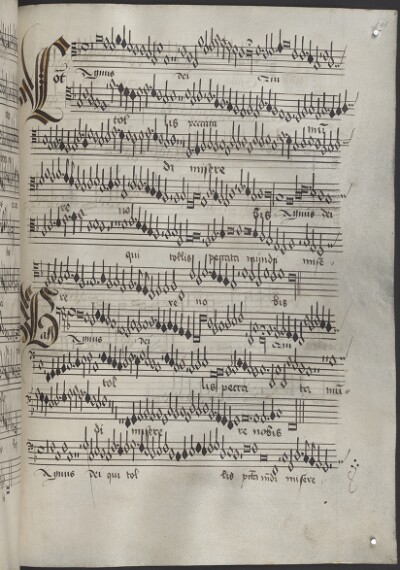 Agnus dei qui
tol lis peccata mū
di misere
re nob bis Agnus dei
qui tollis peccata mundi mise
re re no bis
Agnus dei Qui
tol lis pecca ta mū
di misere re nobis
Agnus dei qui tol lis pcta mūdi misere